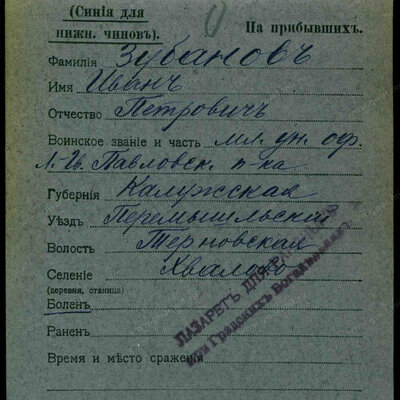 (Синія для
нижн. чиновъ).
На прибывшихъ.
Фамилія Зубановъ
Имя Иванъ
Отчество Петровичъ
Воинское званіе и часть мл. ун. оф.
Л. Гв. Павловск. п-ка
Губернія Калужская
Уѣздъ Перемышльскій
Волость Терновская
Селеніе Хвалово
(деревня, станица)
Боленъ
Раненъ
Время и мѣсто сраженія
ЛАЗАРЕТЪ ДЛЯ
при Градскихъ